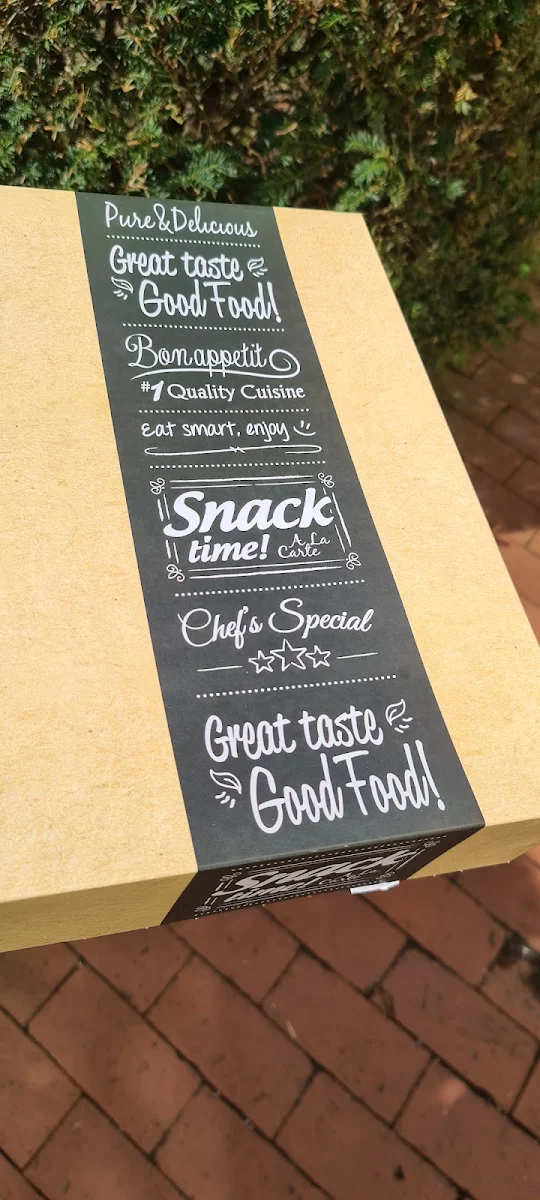 Pure & Delicious
Great taste
Good Food!
Bon appetit
#1 Quality Cuisine
Eat smart, enjoy
Snack
time! A La
Carte
Chef's Special
Great taste
Good Food!
Snack
time!